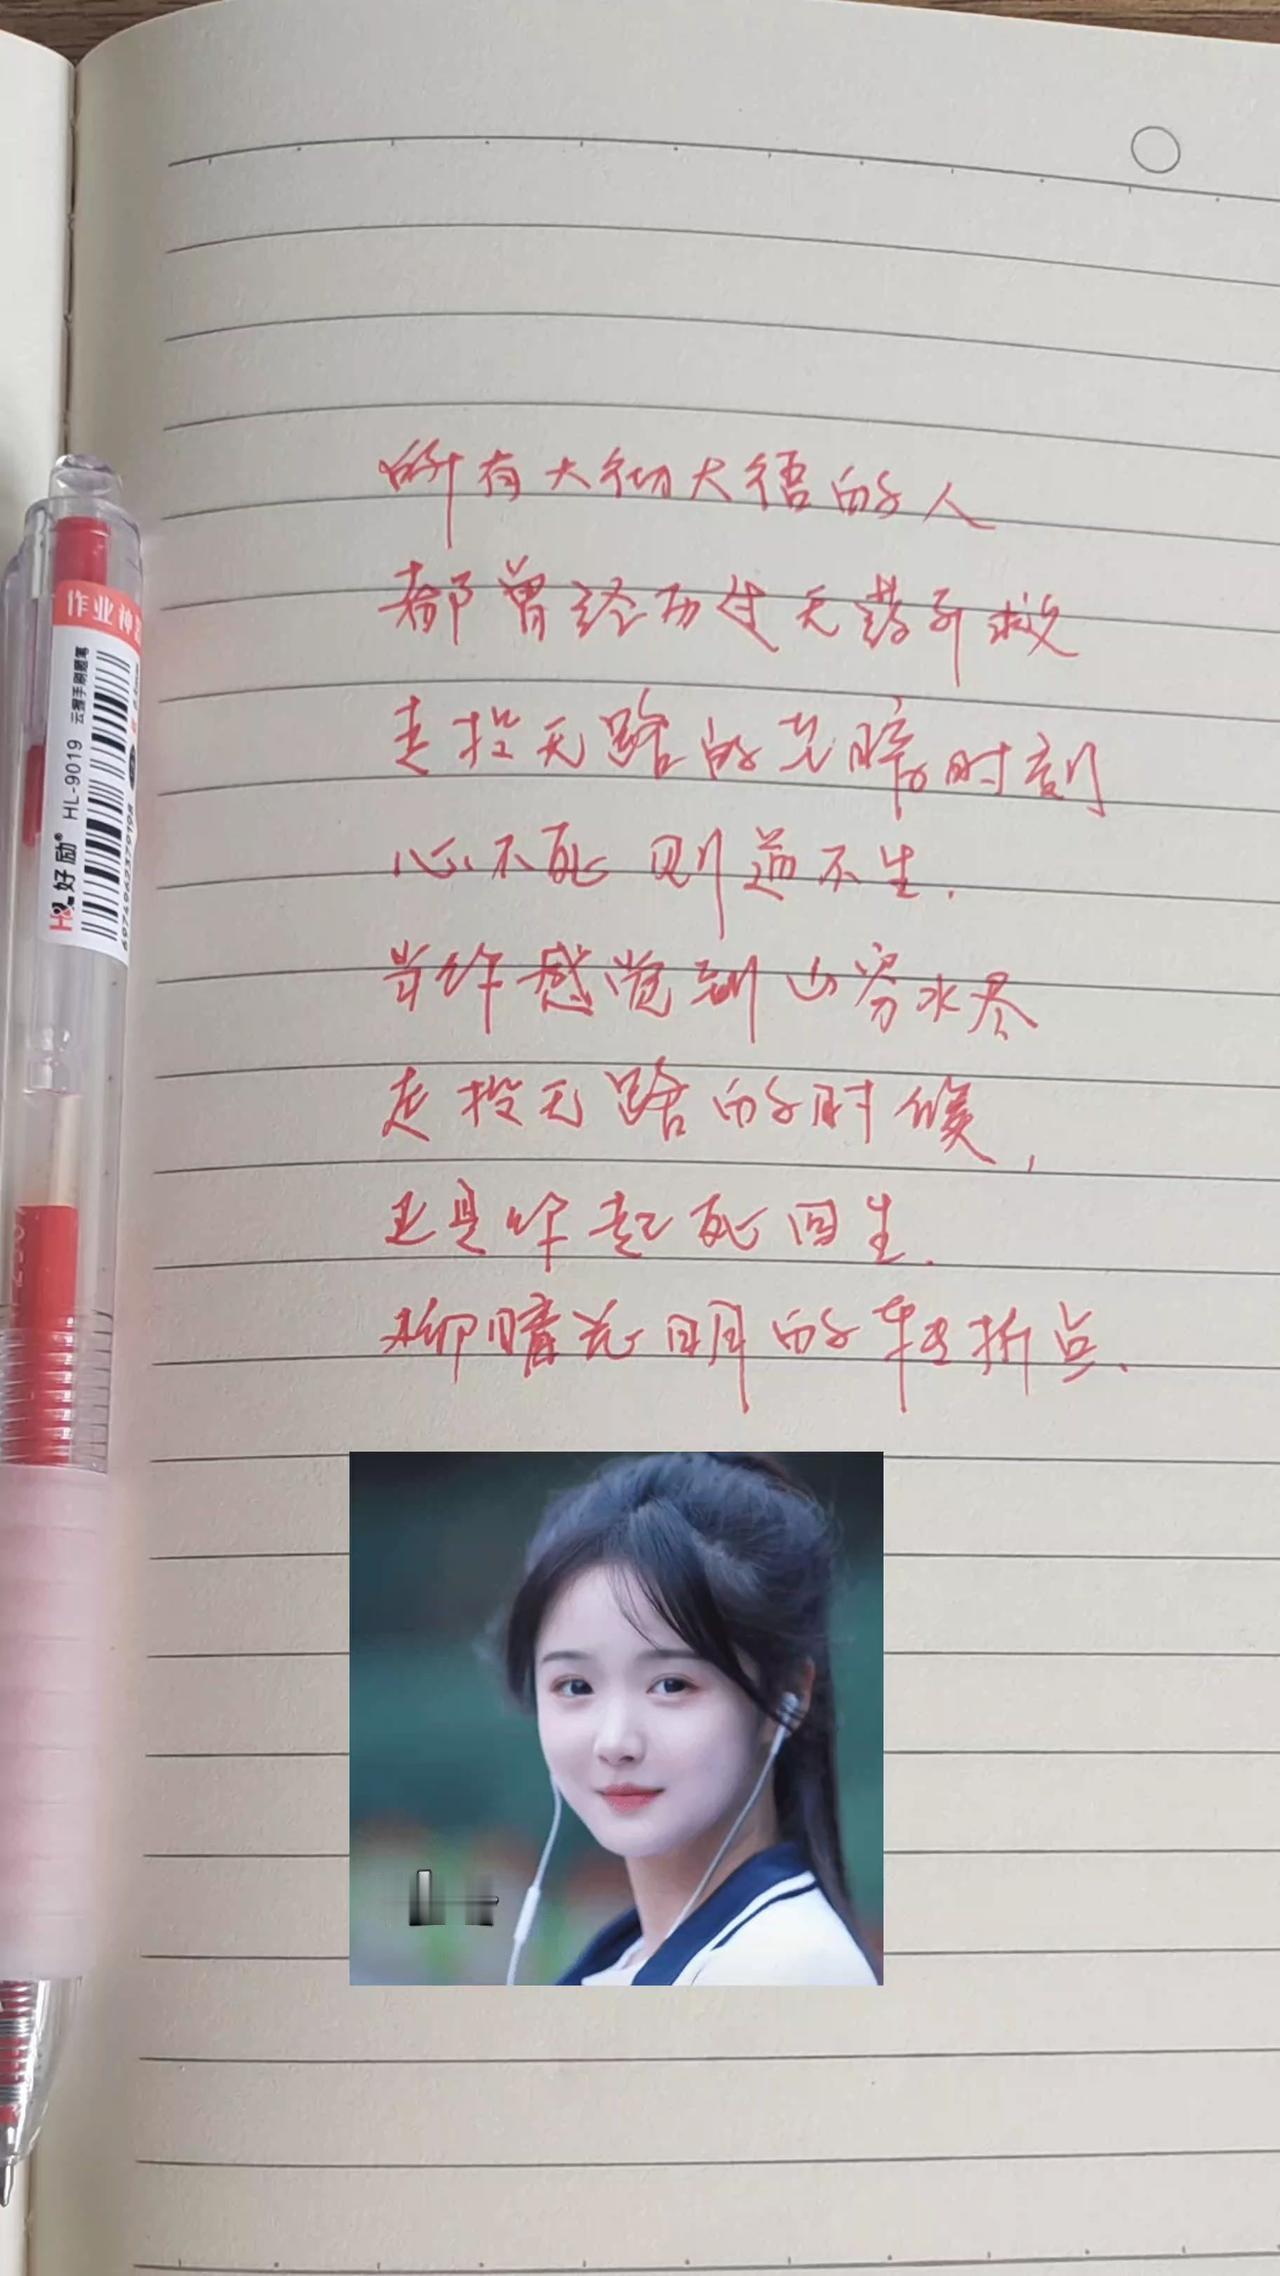 所有大彻大悟的人
都曾经历过无药可救
走投无路的至暗时刻
心不死则道不生.
当你感觉到山穷水尽
走投无路的时候,
正是你起死回生.
柳暗花明的转折点.
作业神
HL 好励® HL-9019 云雾手刷题笔
6974966237919